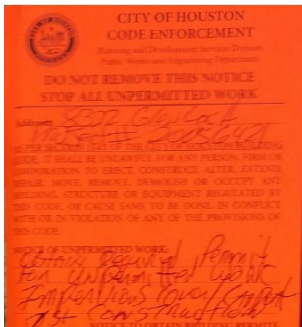 CITY OF HOUSTON
CODE ENFORCEMENT
Planning and Development Services Division
Public Works and Engineering Department
DO NOT REMOVE THIS NOTICE
STOP ALL UNPERMITTED WORK
Address:
Project #
AS PER SECTION OF THE CITY OF HOUSTON BUILDING
CODE, IT SHALL BE UNLAWFUL FOR ANY PERSON, FIRM OR
CORPORATION TO ERECT, CONSTRUCT, ALTER, EXTEND
REPAIR, MOVE, REMOVE, DEMOLISH OR OCCUPY ANY
BUILDING, STRUCTURE OR EQUIPMENT REGULATED BY
THIS CODE, OR CAUSE SAME TO BE DONE, IN CONFLICT
WITH OR IN VIOLATION OF ANY OF THE PROVISIONS OF
THIS CODE.
NOTICE OF UNPERMITTED WORK:
Obtain Required Permit
For unpermitted work
Impervious Cover
Construction
NOTICE TO OBTAIN BUILDING PERMITS